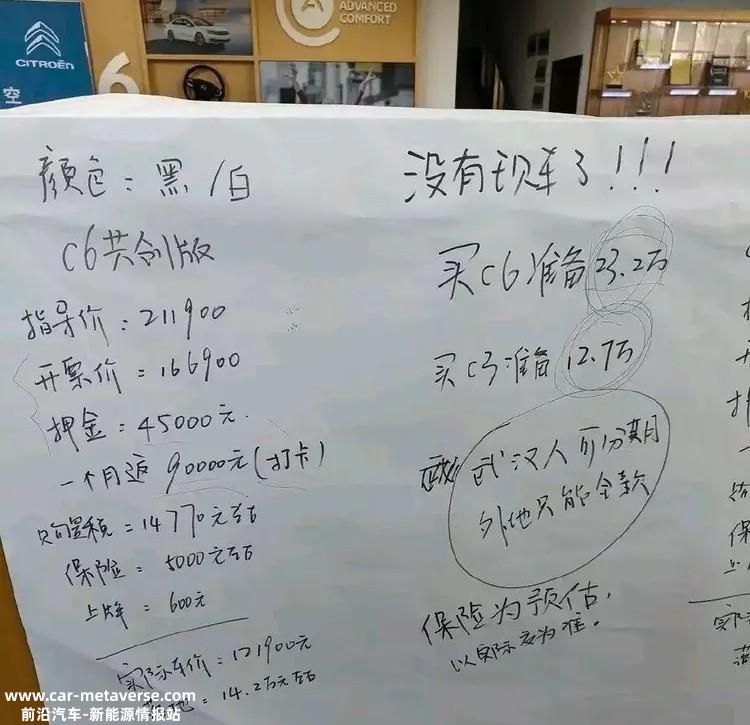 CITROËN
空
6
A
ADVANCED
COMFORT
颜色：黑/白
C6共创版
指导价：211900
开票价=166900
押金：45000元.
一个月返 90000元(打卡)
购置税=14770元左右
保险=5000元左右
上牌=600元
实际车价=121900元
落地=14.2万元左右
没有现车了!!!
买C6准备23.2万
买C3准备12.7万
武汉人可分期
外地只能全款
保险为预估,
以实际为准.
www.car-metaverse.com
前沿汽车-新能源情报站